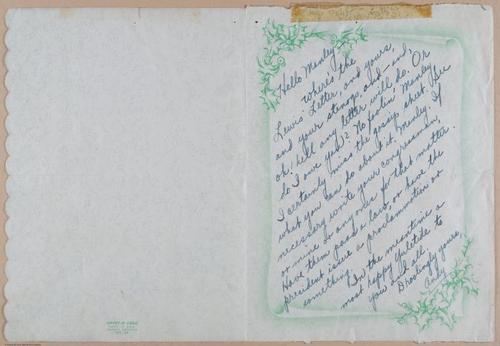 Hello Menley
Where's the
Lewis' Letter, and yours,
and your stenogs, and— and,
oh, hell any letter will do. Or
do I owe you? No foolin' Menley
I certainly miss the gossip sheet. See
what you can do about it, Menley. If
necessary write your congressman,
or mine or anyones for that matter.
Have them pass a law, or have the
president issue a proclammation or
something.
In the meantime a
most happy Yuletide to
you and all.
Droolingly yours,